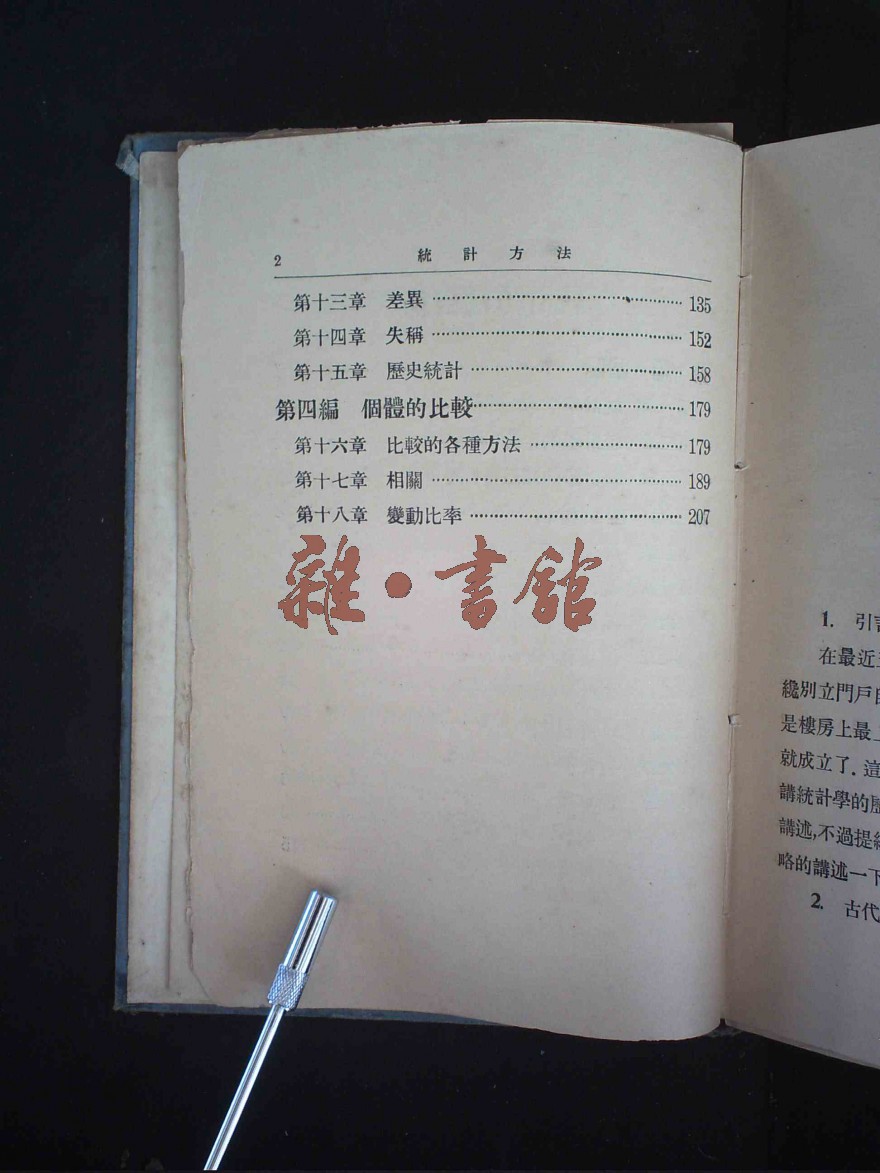 2 統計方法
第十三章 差異 135
第十四章 失稱 152
第十五章 歷史統計 158
第四編 個體的比較 179
第十六章 比較的各種方法 179
第十七章 相關 189
第十八章 變動比率 207
雜·書館
1. 引
在最近
纔別立門戶
是樓房上最
就成立了.這
講統計學的
講述,不過提
略的講述一下
2. 古代